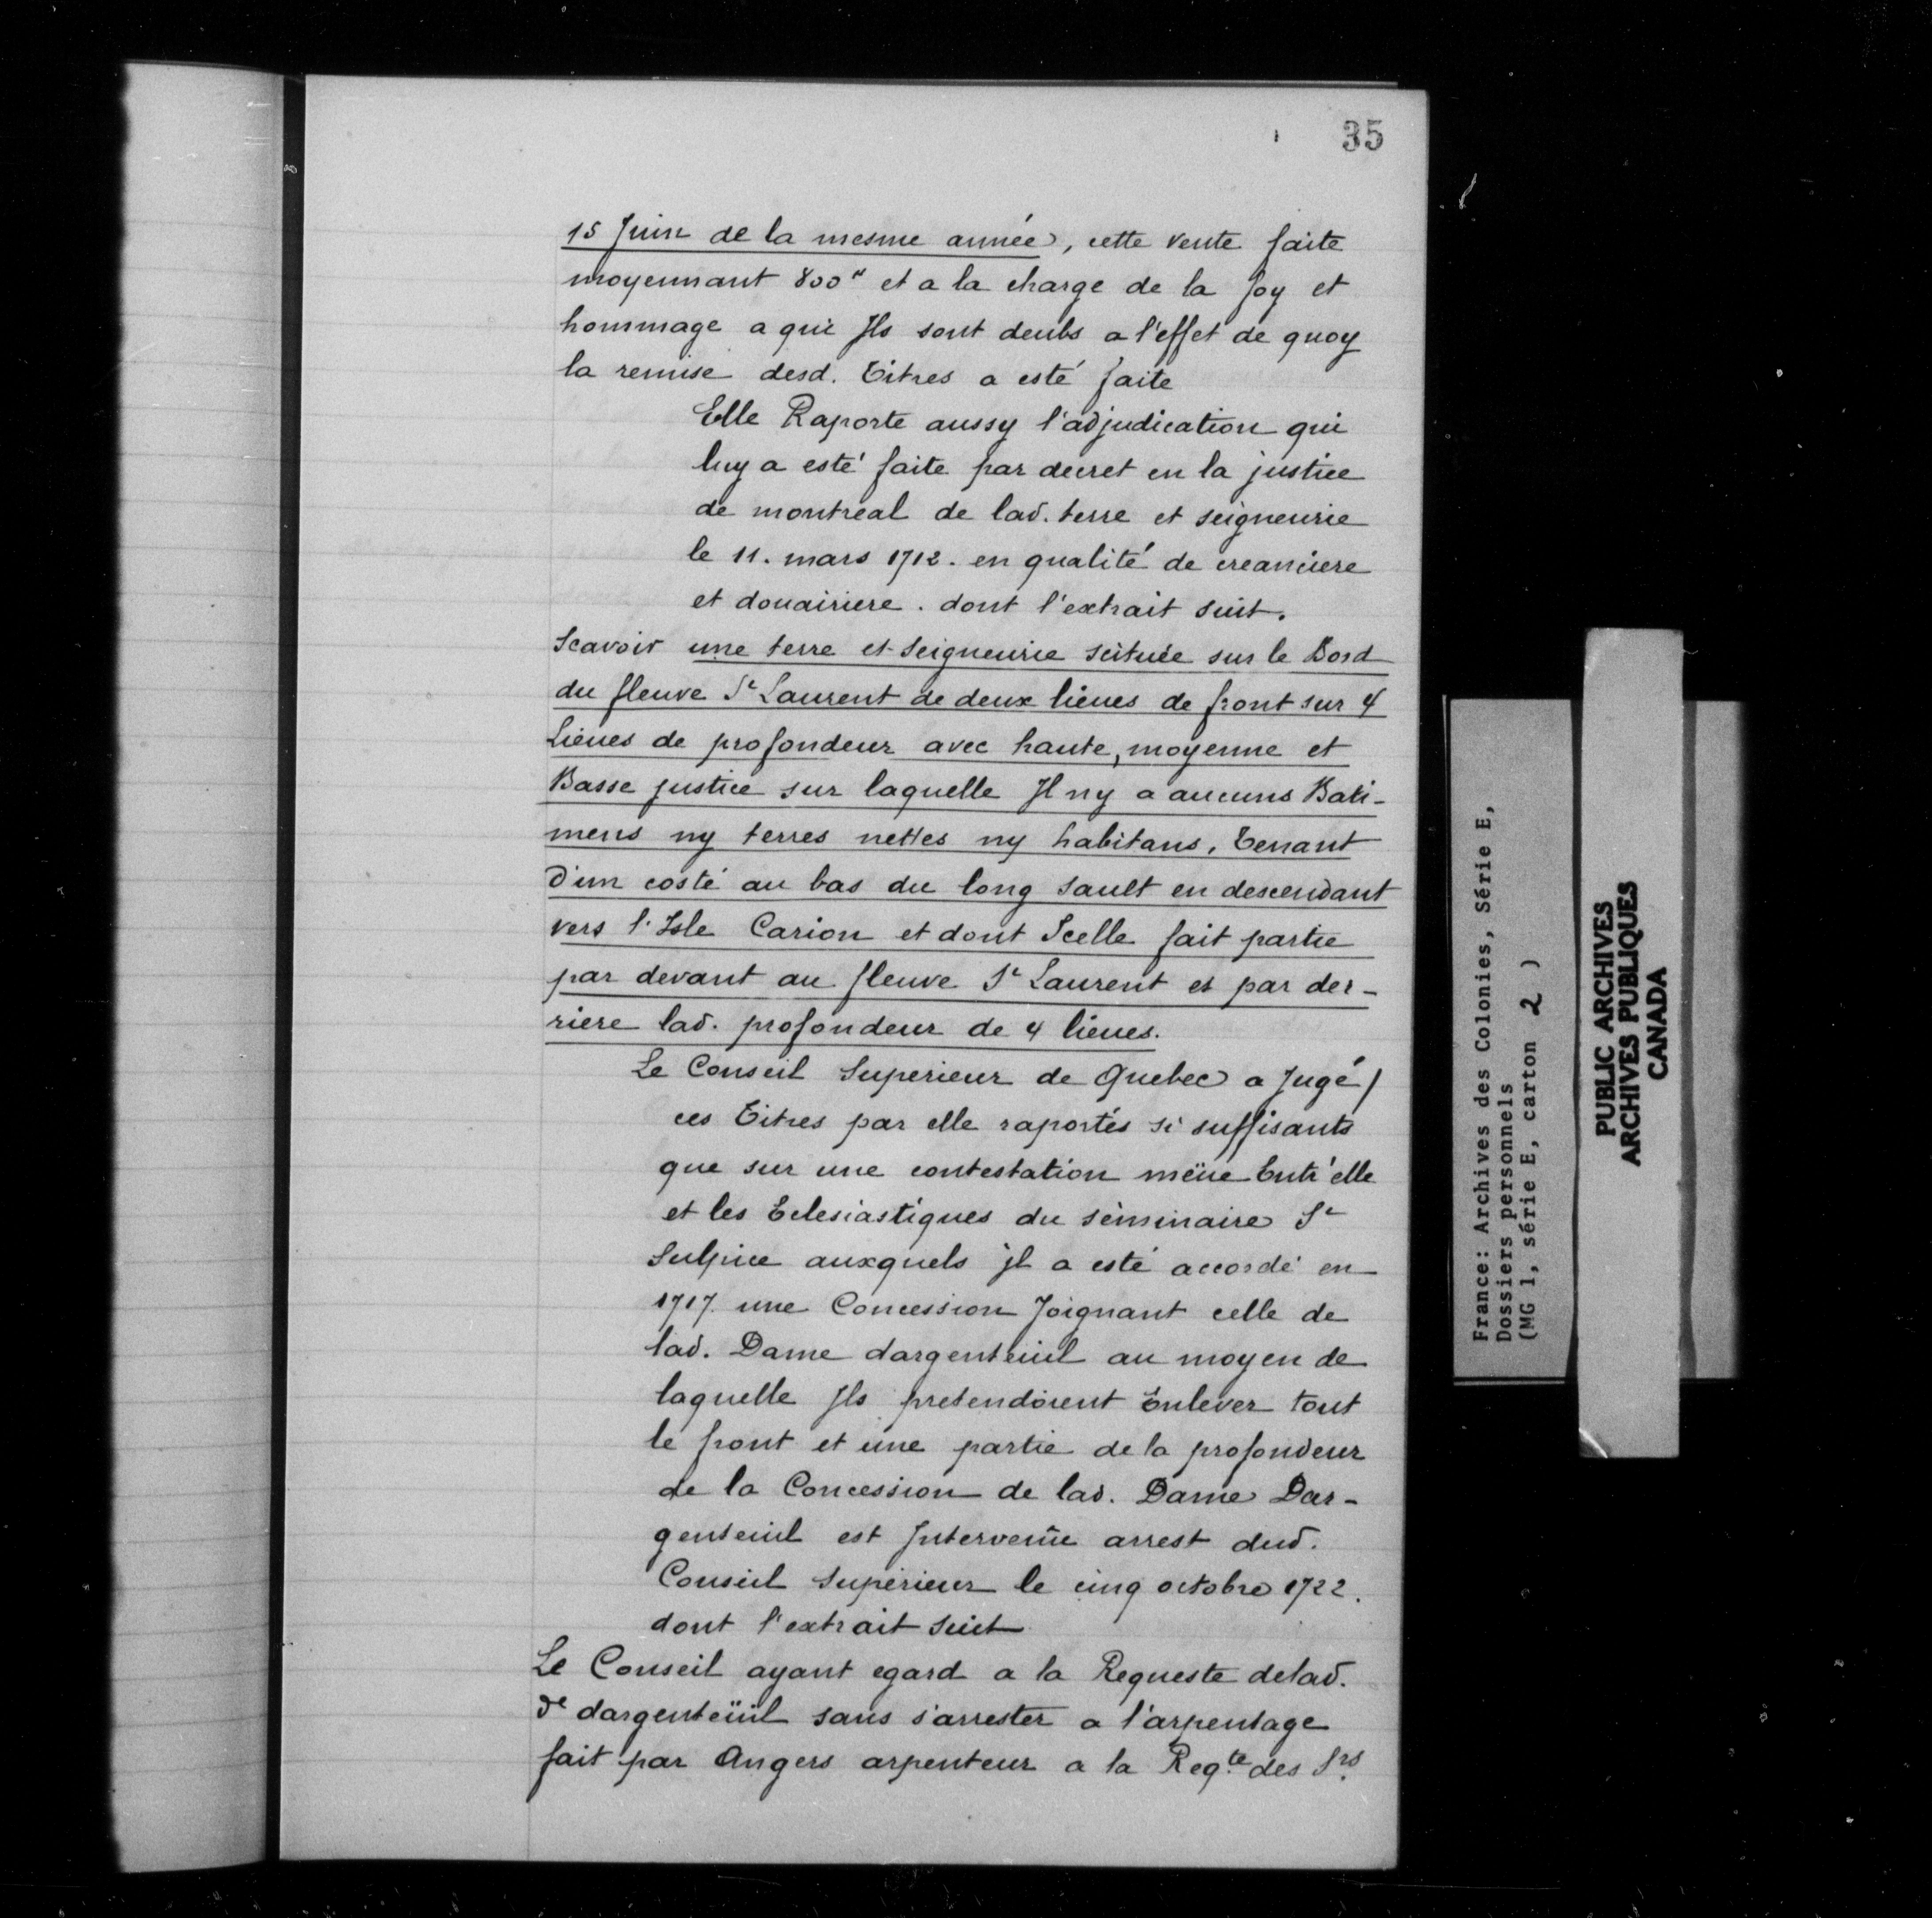 35
15 Juin de la mesme année, cette vente faite
moyennant 800# et a la charge de la foy et
hommage a qui Ils sont deubs a l'effet de quoy
la remise desd. Titres a esté faite
Elle Raporte aussy l'adjudication qui
luy a esté faite par decret en la justice
de montreal de lad. terre et seigneurie
le 11. mars 1712. en qualité de creanciere
et douairiere. dont l'extrait suit.
Scavoir une terre et Seigneurie scituée sur le Bord
du fleuve St Laurent de deux lieues de front sur 4
Lieues de profondeur avec haute, moyenne et
Basse justice sur laquelle Il ny a aucuns Bati-
mens ny terres nettes ny habitans, Tenant
D'un costé au bas du long Sault en descendant
vers l'Isle Carion et dont Icelle fait partie
par devant au fleuve St Laurent et par der-
riere lad. profondeur de 4 lieues.
Le Conseil Superieur de Quebec a Jugé/
ces Titres par elle raportés si suffisants
que sur une contestation müe Entr'elle
et les Eclesiastiques du séminaire St
Sulpice auxquels il a esté accordé en
1717. une Concession Joignant celle de
lad. Dame dargenteuil au moyen de
laquelle Ils pretendoient Enlever tout
le front et une partie de la profondeur
de la Concession de lad. Dame Dar-
genteuil est Intervenüe arrest dud.
Conseil Supérieur le cinq octobre 1722.
dont l'extrait suit
Le Conseil ayant egard a la Requeste delad.
de dargenteüil sans s'arrester a l'arpentage
fait par Angers arpenteur a la Reqte des Srs
France: Archives des Colonies, Série E,
Dossiers personnels
(MG 1, série E, carton 2 )
PUBLIC ARCHIVES
ARCHIVES PUBLIQUES
CANADA